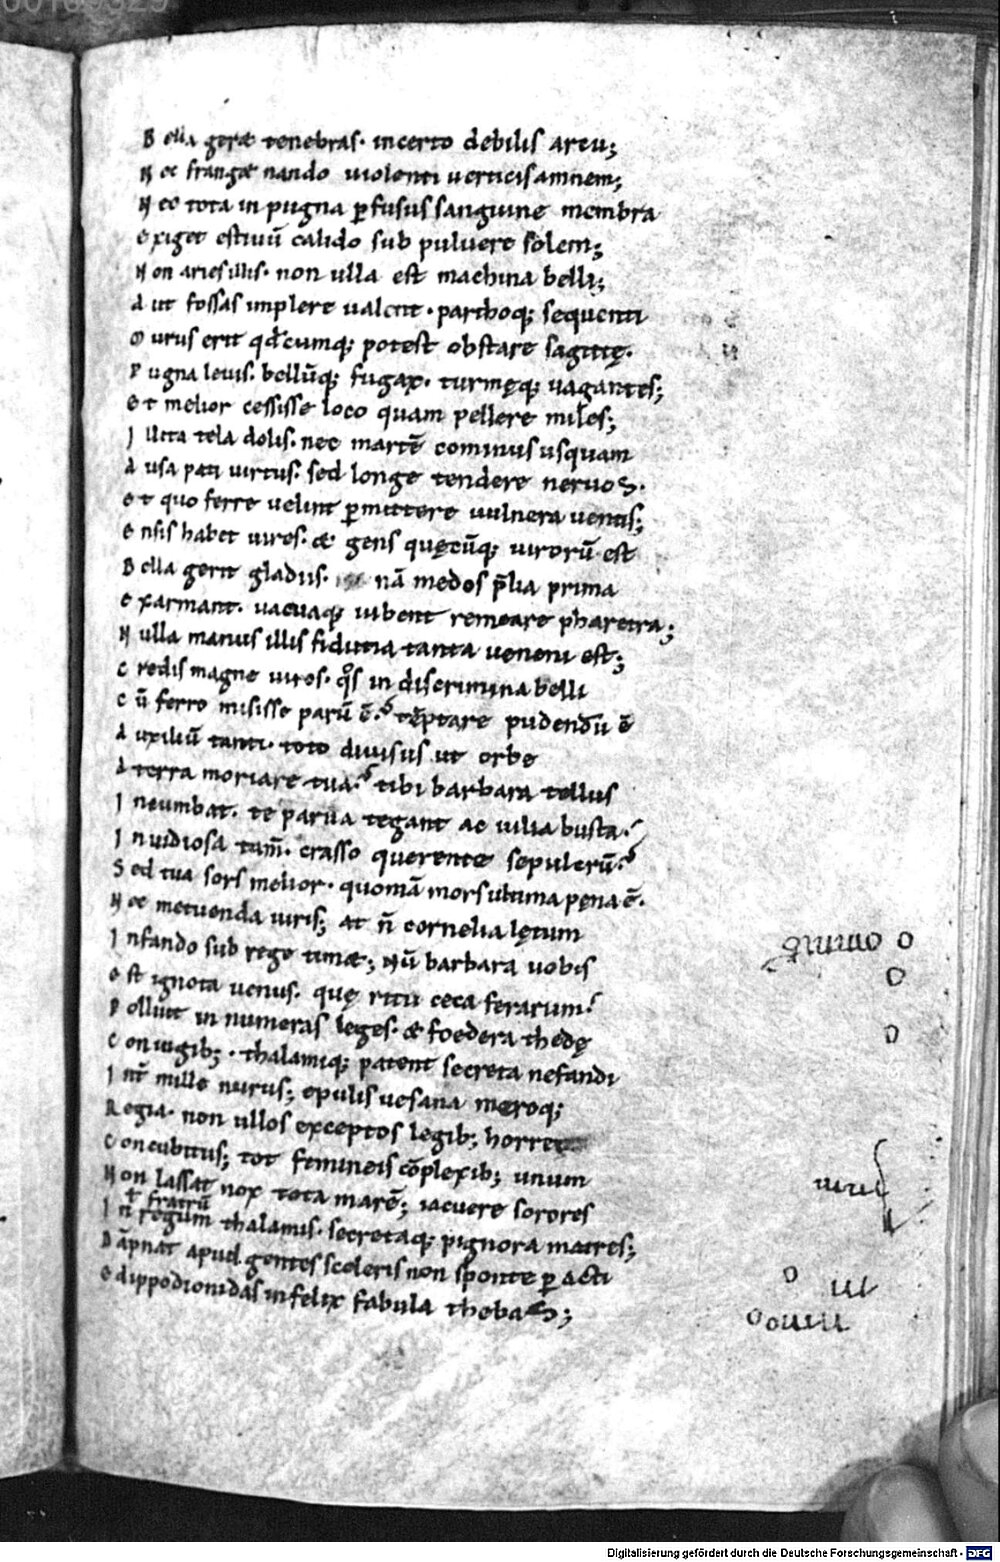 00109329
Bella geret tenebras· incerto debilis arcu;
Nec franget nando uiolenti uerticis amnem;
Nec tota in pugna ꝑfusus sanguine membra
exiget estiuū calido sub puluere solem;
Non aries illis· non ulla est machina belli;
Aut fossas implere ualent· parthoq; sequenti
Murus erit qd́cumq; potest obstare sagittę·
Pugna leuis· bellūq; fugax· turmęq; uagantes;
et melior cessisse loco quam pellere miles;
Illita tela dolis· nec martē cominus usquam
Ausa pati uirtus· sed longe tendere neruos·
et quo ferre uelint ꝑmittere uulnera uentis;
ensis habet uires· & gens quęcūq; uirorū est
Bella gerit gladiis· nā medos p̄lia prima
exarmant· uacuaq; iubent remeare pharetra;
Nulla manus illis fiducia tanta ueneni est;
Credis magne uiros· qͦs in discrimina belli
Cū ferro misisse parū ē· tēptare pudendū ē
Auxiliū tanti· toto diuisus ut orbe
A terra moriare tua· tibi barbara tellus
Incumbat· te parua tegant ac uilia busta·
Inuidiosa tam̄· crasso querente sepulcrū·
Sed tua sors melior· quoniā mors ultima pęna ē·
Nec metuenda uiris; at n̄ cornelia lętum
Infando sub rege timet; Nū barbara uobis
est ignota uenus· quę ritu ceca ferarum·
Polluit innumeras leges· & foedera thedę
Coniugib;· thalamiq; patent secreta nefandi
Int̄ mille nurus; epulis uesana meroq;
Regia· non ullos exceptos legib; horret
Concubitus; tot femineis cōplexib; unum
Non lassat nox tota marē; iacuere sorores
ł fratrū
In regum thalamis· secretaq; pignora matres;
Dāpnat apud gentes sceleris non sponte ꝑacti
edippodionidas infelix fabula thebas;
Digitalisierung gefördert durch die Deutsche Forschungsgemeinschaft · DFG